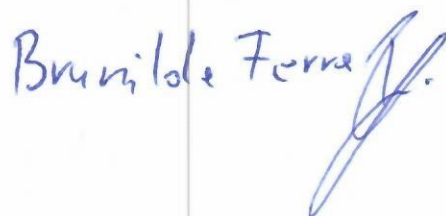 Brunilda Ferraj